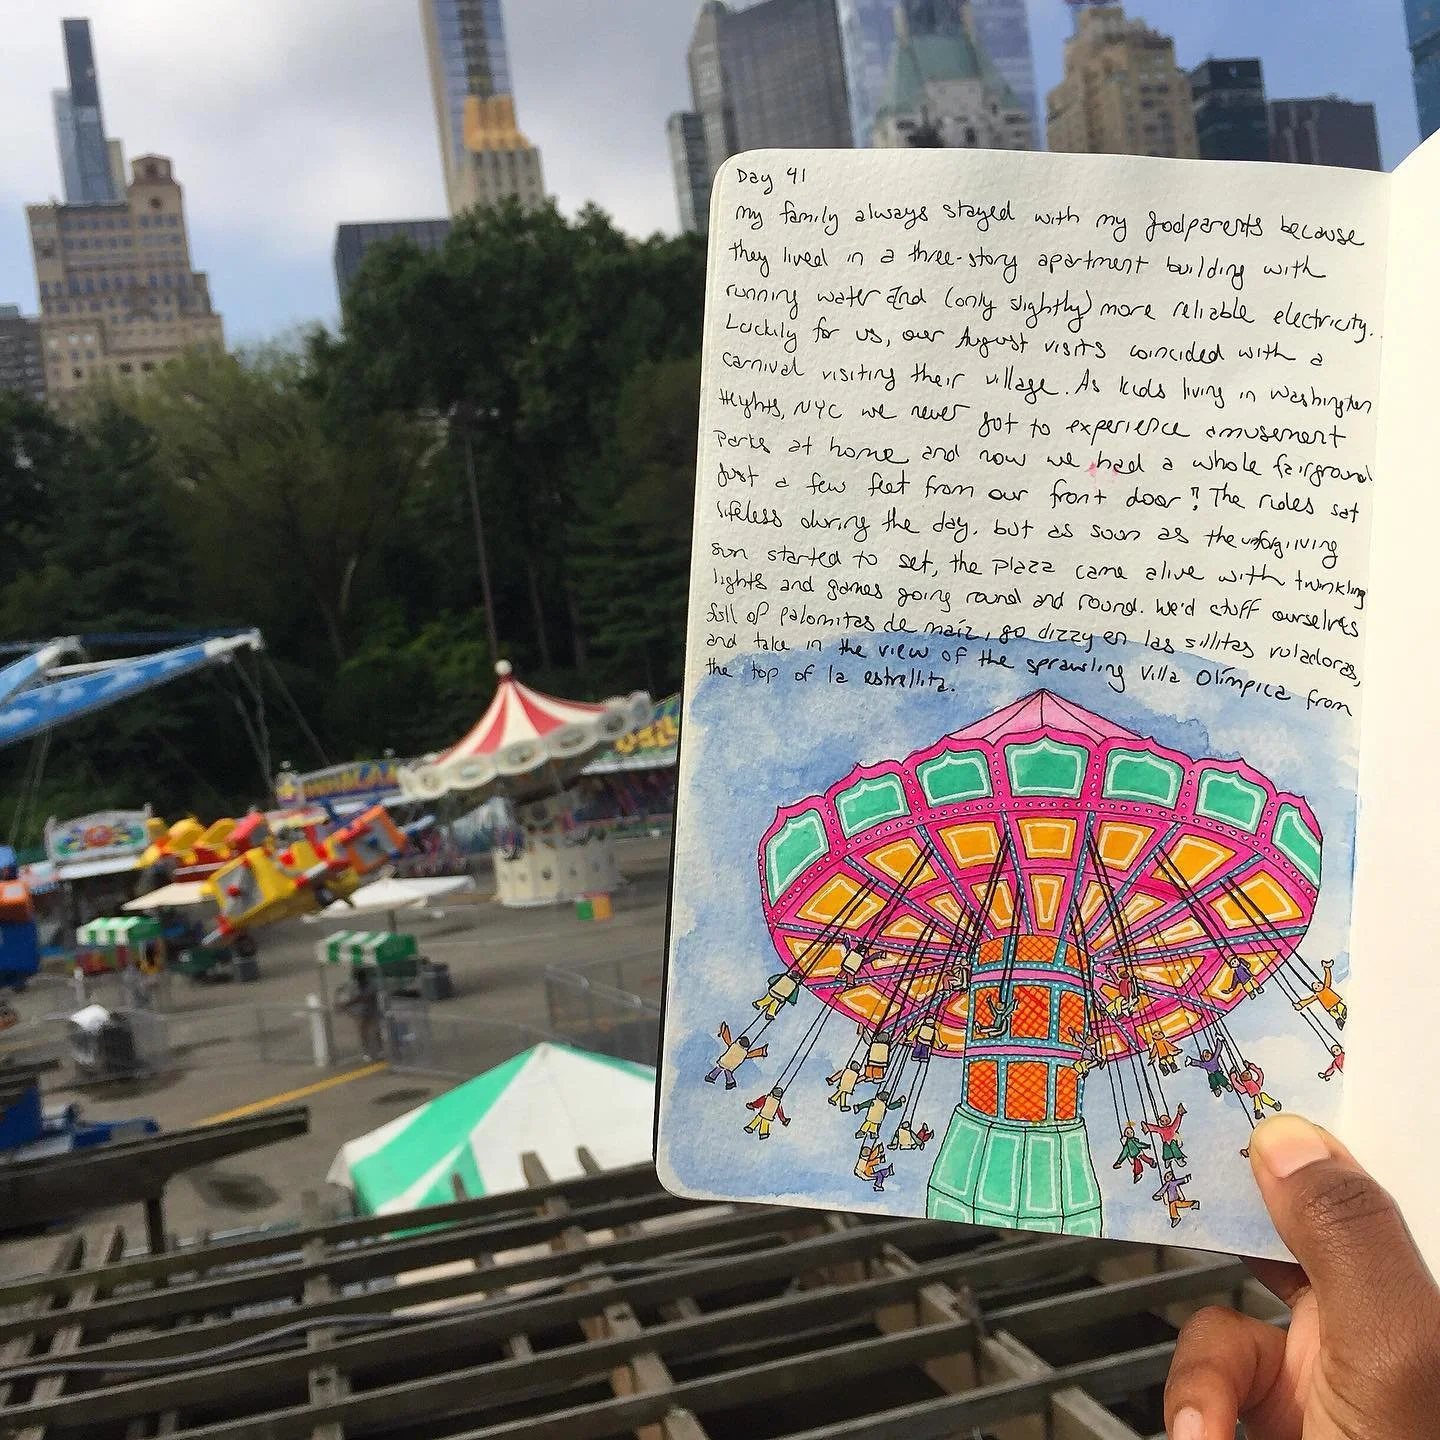 Day 41
My family always stayed with my godparents because
they lived in a three-story apartment building with
running water and (only slightly) more reliable electricity.
Luckily for us, our August visits coincided with a
carnival visiting their village. As kids living in Washington
Heights, NYC we never got to experience amusement
parks at home and now we had a whole fairground
just a few feet from our front door? The rides sat
lifeless during the day, but as soon as the unforgiving
sun started to set, the plaza came alive with twinkling
lights and games going round and round. We'd stuff ourselves
full of palomitas de maíz, go dizzy en las sillitas voladoras,
and take in the view of the sprawling Villa Olímpica from
the top of la estrellita.